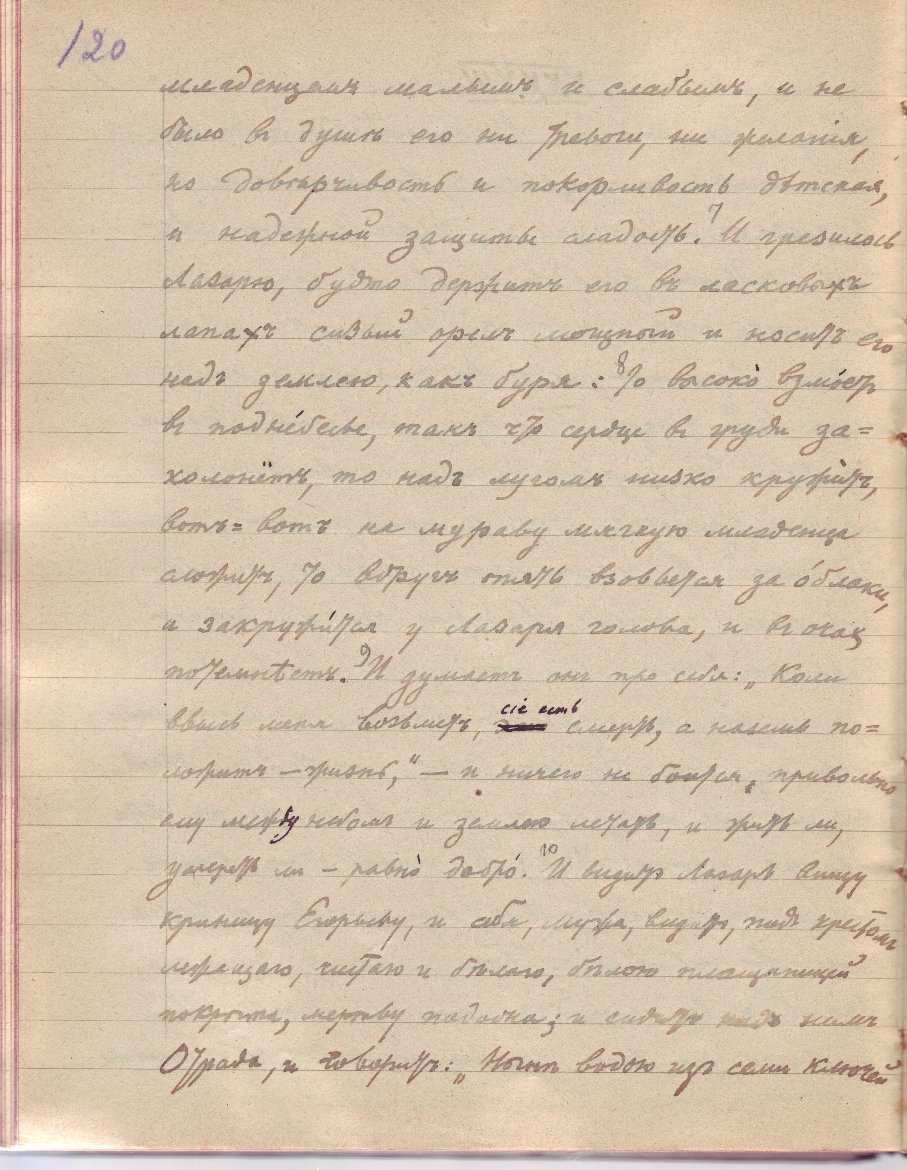 120
младенцемъ малымъ и слабымъ, и не
было въ душѣ его ни тревоги, ни желанія,
но довѣрчивость и покорливость дѣтская,
и надежной защиты сладость. 7 И грезилось
Лазарю, будто держитъ его въ ласковыхъ
лапахъ сизый орелъ мощный и носитъ его
надъ землею, какъ буря: 8 то высоко̀ взмоетъ
въ подне́бесье, такъ что сердце въ груди за=
холонётъ, то надъ лугомъ низко кружи́тъ,
вотъ=вотъ на мураву мягкую младенца
сложитъ, то вдругъ опять взовьется за о́блаки,
и закружи́тся у Лазаря голова, и въ очахъ
потемнѣетъ. 9 И думаетъ онъ про себя: „Коли
ввысь меня возьметъ, сіе есть смерть, а наземь по=
ложитъ — жизнь,“ — и ничего не боится; привольно
ему между небомъ и землею летать, и жить ли,
умереть ли — равно̀ добро́. 10 И видитъ Лазарь
криницу Егорьеву, и себя, мужа, видитъ, подъ крестомъ
лежащаго, чистаго и бѣлаго, бѣлою плащаницей
покрыта, мертву подобна; и сидитъ надъ нимъ
Отрада, и говоритъ: „Нынѣ водою изъ семи ключей